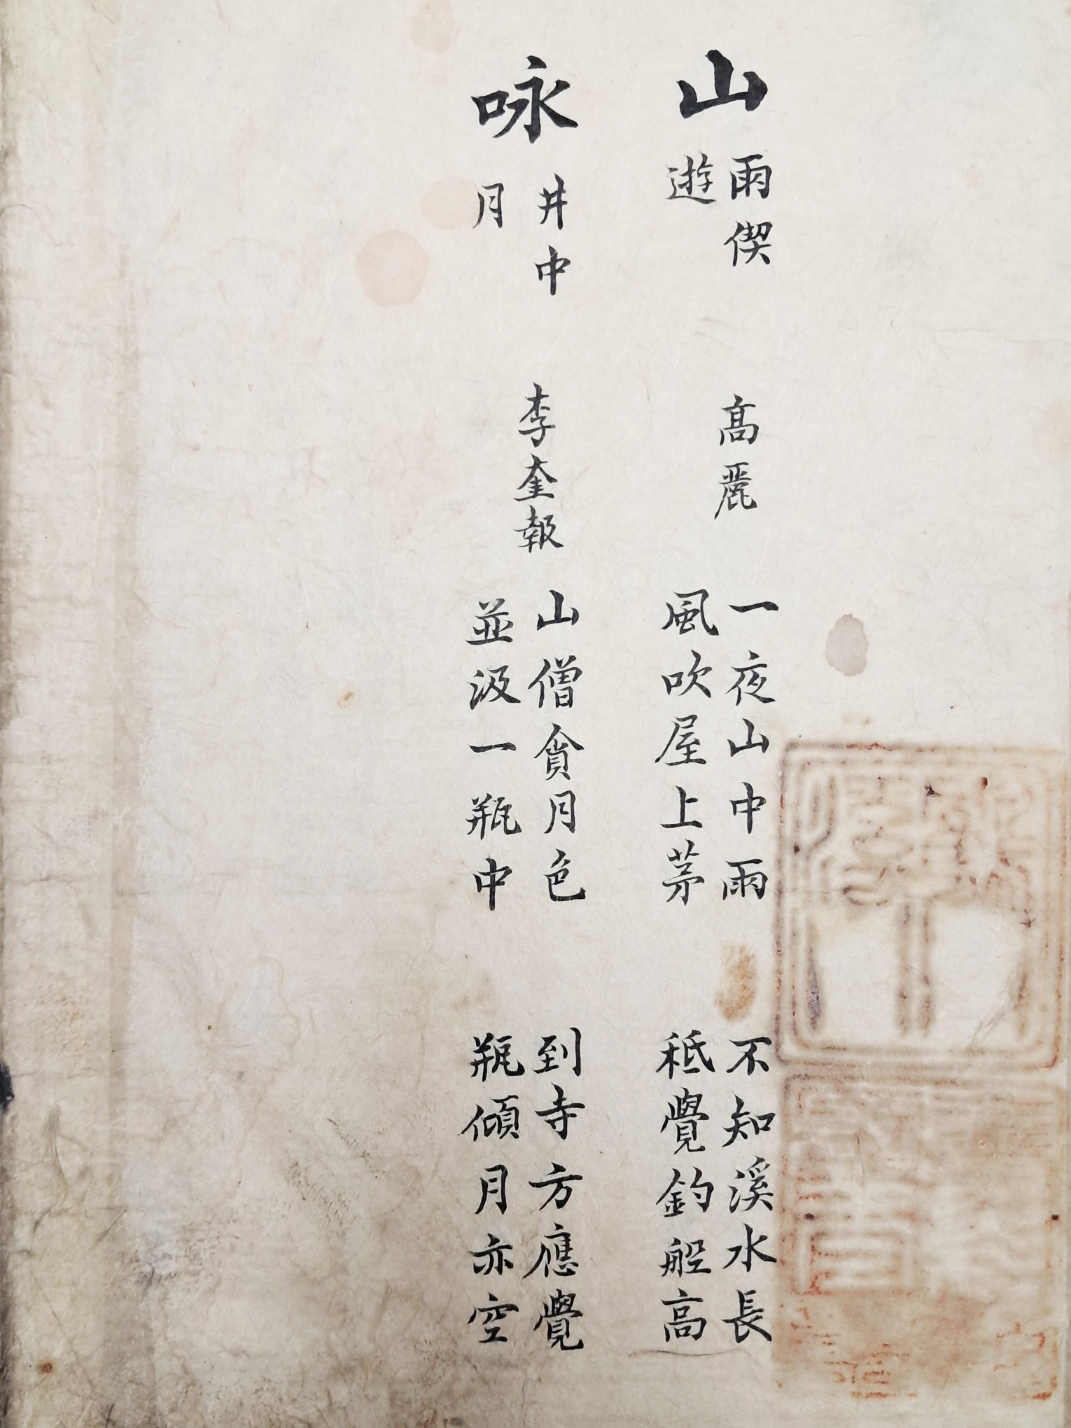 山雨
偰遜
高麗
一夜山中雨
風吹屋上茅
不知溪水長
秪覺釣船高
咏井中
月
李奎報
山僧貪月色
並汲一瓶中
到寺方應覺
瓶傾月亦空